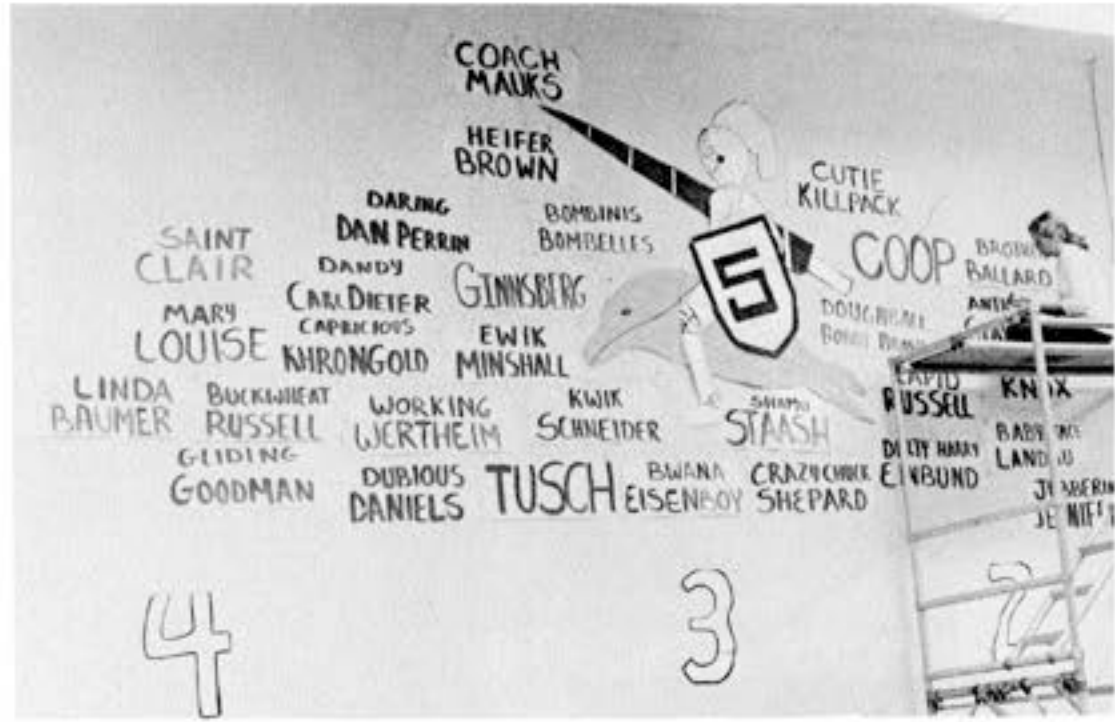 COACH
MAUKS
HEIFER
BROWN
CUTIE
KILLPACK
DARING
DAN PERRIN
BOMBINIS
BOMBELLES
SAINT
CLAIR
DANDY
CARL DIETER
GINNSBERG
5
COOP
BALLARD
MARY
LOUISE
CAPRICIOUS
KHRONGOLD
EWIK
MINSHALL
DOUGHBALL
LINDA
BAUMER
BUCKWHEAT
RUSSELL
WORKING
WERTHEIM
KWIK
SCHNEIDER
SHAMU
STAASH
RAPID
RUSSELL
KNOX
GLIDING
GOODMAN
DUBIOUS
DANIELS
TUSCH
BWANA
EISENBOY
CRAZY CHUCK
SHEPARD
DIRTY HARRY
EINBUND
BABY FACE
LANDAU
4
3
2